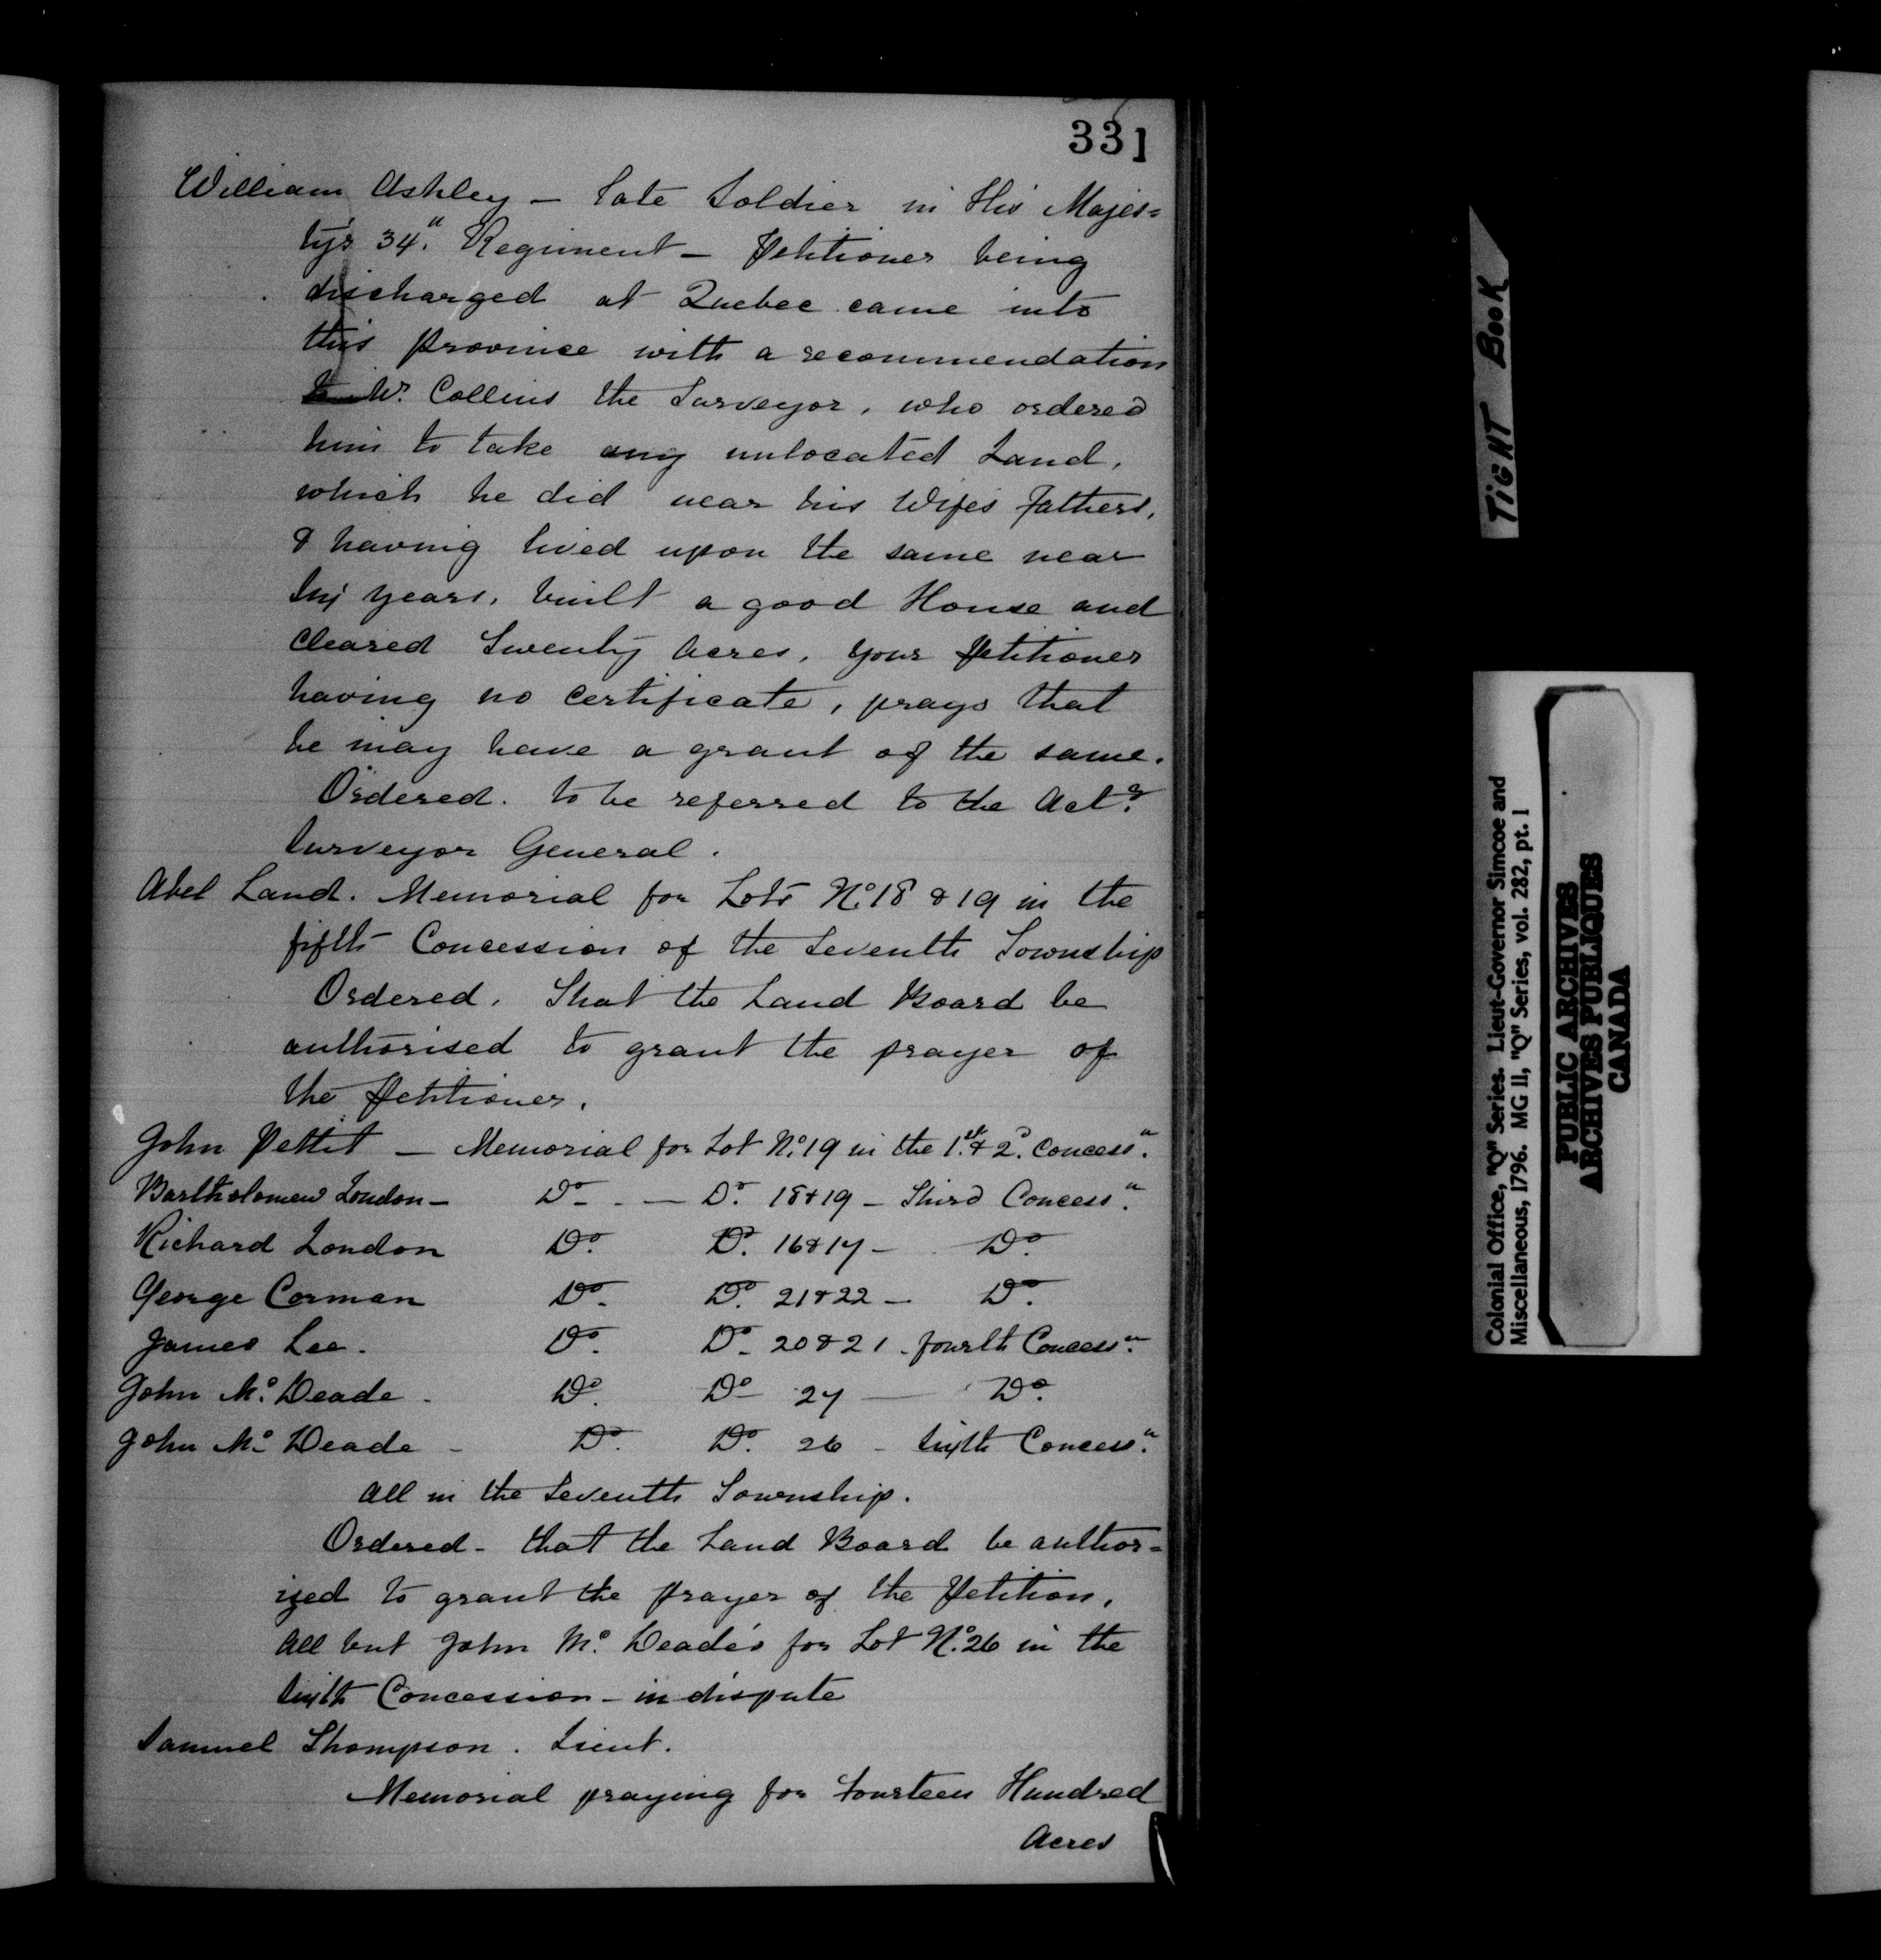 331
William Ashley — late Soldier in His Majes=
ty's 34th Regiment — Petitioner being
discharged at Quebec came into
this province with a recommendation
to Mr. Collins the Surveyor, who ordered
him to take any unlocated Land,
which he did near his Wifes Fathers,
& having lived upon the same near
six years, built a good House and
cleared Twenty Acres, your Petitioner
having no certificate, prays that
he may have a grant of the same.
Ordered. to be referred to the Actg.
Surveyor General.
Abel Land. Memorial for Lots No. 18 & 19 in the
fifth Concession of the Seventh Township
Ordered. That the Land Board be
authorised to grant the prayer of
the Petitioner.
John Pettit — Memorial for Lot No. 19 in the 1st. & 2d. Concessn.
Bartholomew London — Do. — Do. 18 & 19 — Third Concessn.
Richard London Do. Do. 16 & 17 — Do.
George Corman Do. Do. 21 & 22 — Do.
James Lee. Do. Do. 20 & 21 - fourth Concessn.
John Mc. Deade. Do. Do. 27 — Do.
John Mc. Deade - Do. Do. 26 - sixth Concessn.
All in the Seventh Township.
Ordered - that the Land Board be author=
ized to grant the prayer of the Petition,
all but John Mc. Deade's for Lot No. 26 in the
sixth Concession - in dispute
Samuel Thompson. Lieut.
Memorial praying for Fourteen Hundred
Acres
TIGHT BOOK
Colonial Office, "Q" Series. Lieut-Governor Simcoe and
Miscellaneous, 1796. MG 11, "Q" Series, vol. 282, pt. 1
PUBLIC ARCHIVES
ARCHIVES PUBLIQUES
CANADA